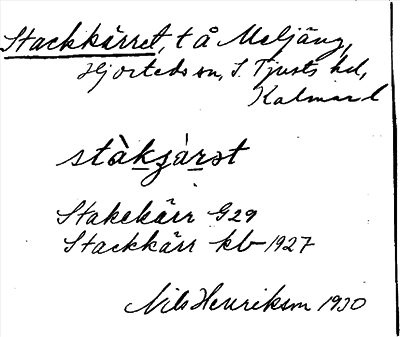 Stackkärret, t å Maljäng,
Hjorteds sn, S. Tjusts hd,
Kalmar l
stàkʒàrət
Stakekärr G29
Stackkärr kb 1927
Nils Henrikson 1930